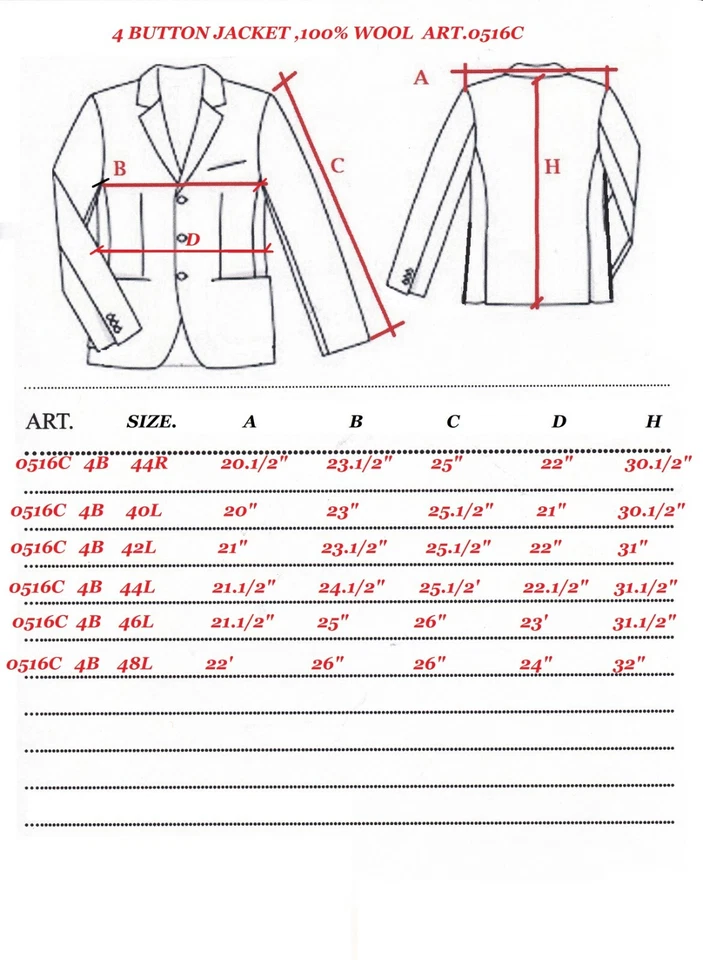 4 BUTTON JACKET ,100% WOOL ART.0516C
A
B
C
H
D
ART. SIZE. A B C D H
0516C 4B 44R 20.1/2" 23.1/2" 25" 22" 30.1/2"
0516C 4B 40L 20" 23" 25.1/2" 21" 30.1/2"
0516C 4B 42L 21" 23.1/2" 25.1/2" 22" 31"
0516C 4B 44L 21.1/2" 24.1/2" 25.1/2' 22.1/2" 31.1/2"
0516C 4B 46L 21.1/2" 25" 26" 23' 31.1/2"
0516C 4B 48L 22' 26" 26" 24" 32"